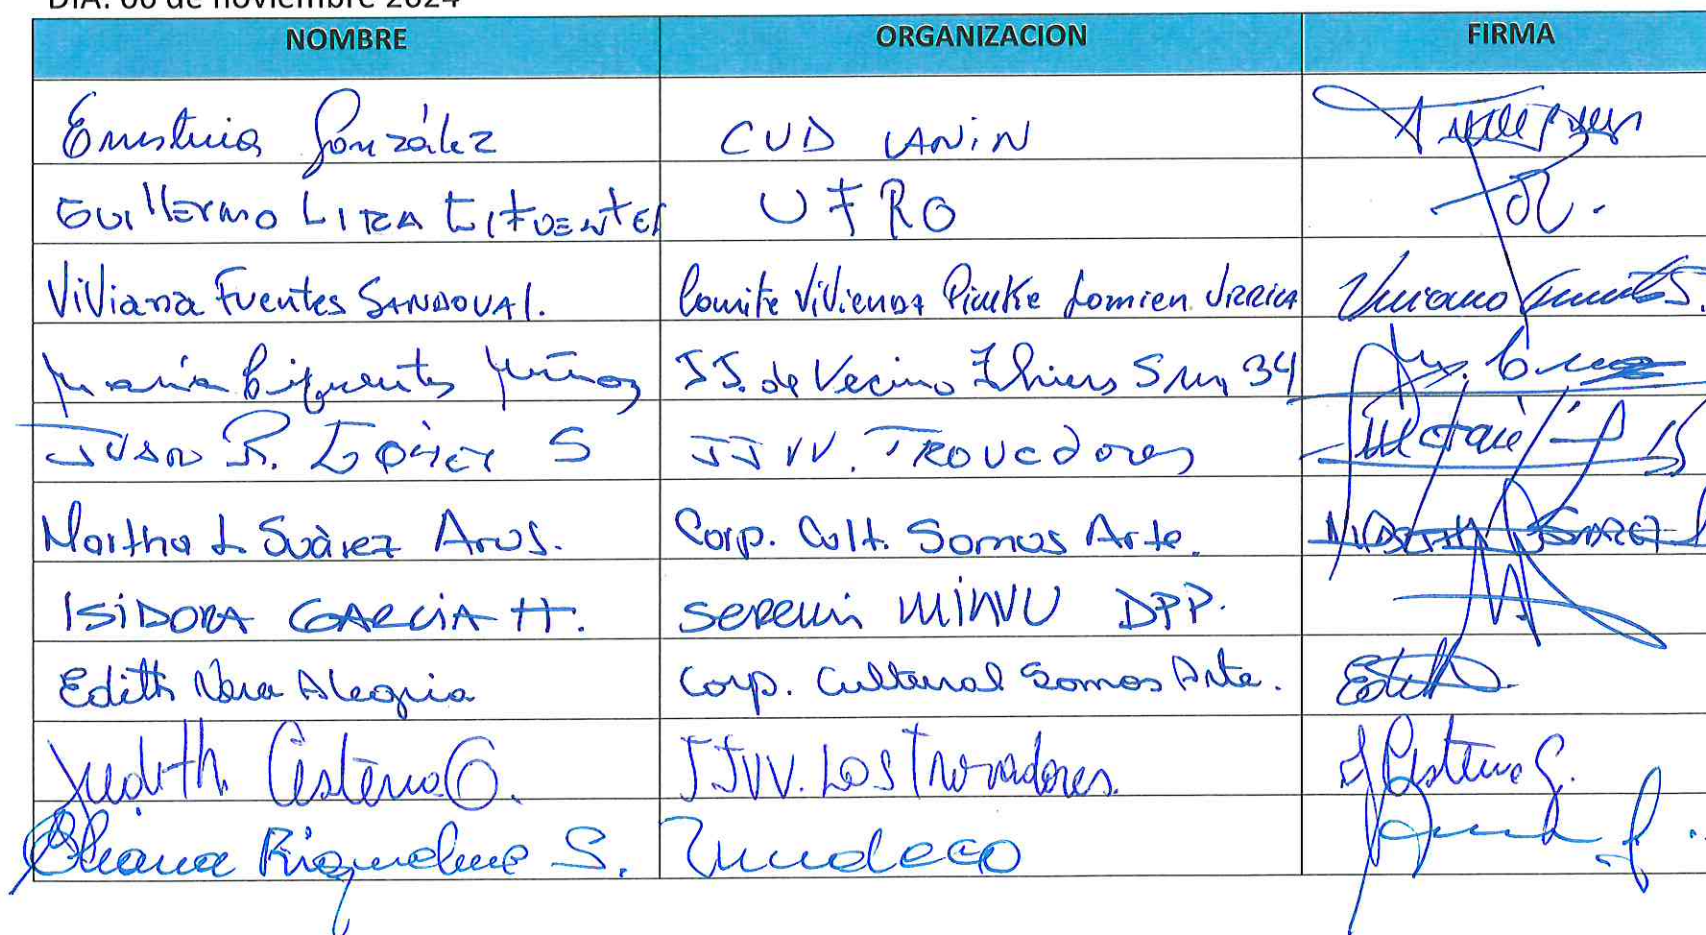 DIA: 06 de noviembre 2024
NOMBRE ORGANIZACION FIRMA
González CUD LANiN
Guillermo LIRA CIFUENTES UFRO
ViViana Fuentes SANDOVAl. Comite ViVienda Piuke Viviana Fuentes S.
María Cifuentes Muñoz JJ. de Vecino 34
JUAN R. S JJVV. TROVadores
Martha L. Suàrez Aros. Corp. Cult. Somos Arte. MARTHA SUAREZ
ISIDORA GARCIA H. SEREMi MINVU DPP.
Edith Alegria Corp. Cultural Somos Arte. Edith
Judith Cisterna G. JJVV. Los Trovadores. J Cisterna G.
Riquelme S.